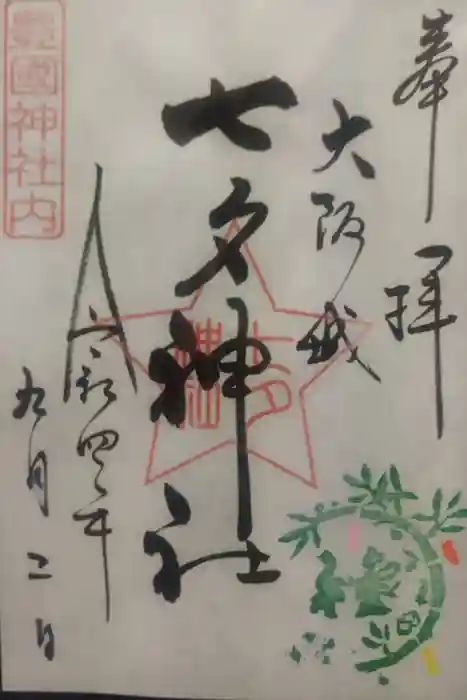 奉拝
大阪城
七夕神社
七夕
神社
令和四年
九月二日
豊國神社内